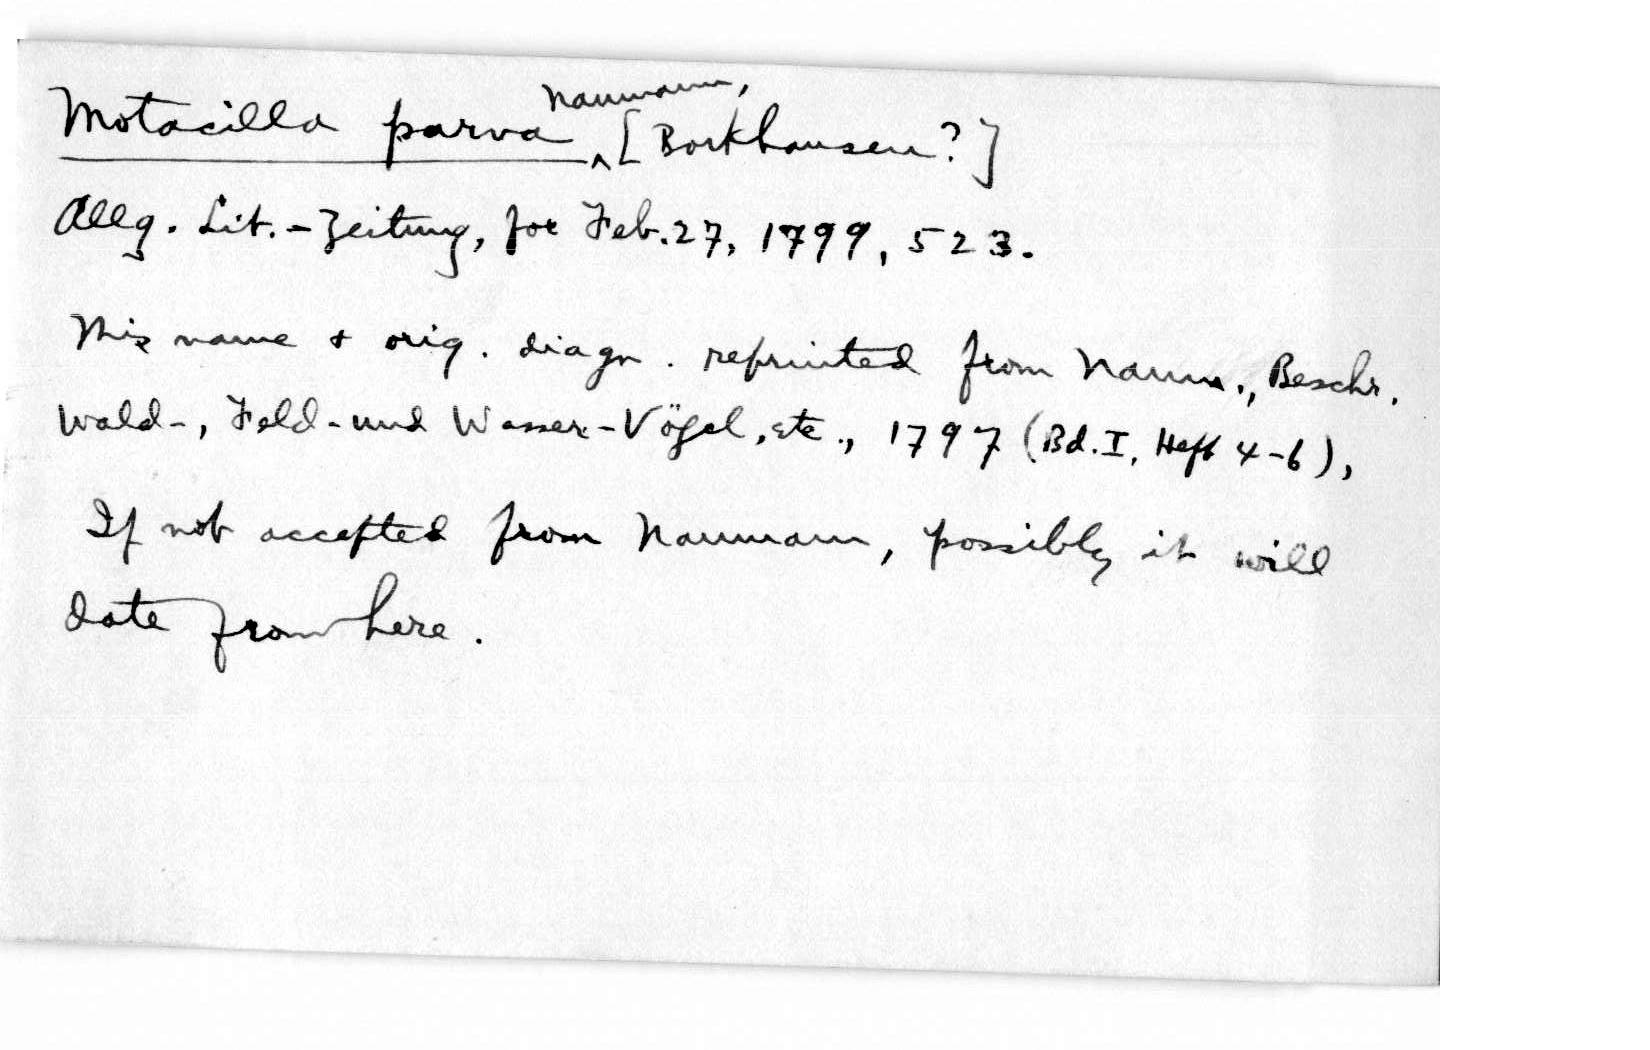 Motacilla parva ^ Naumann, [Borkhausen?]
Allg. Lit.-Zeitung, for Feb. 27, 1799, 523.
This name & orig. diagn. reprinted from Naum., Beschr.
Wald-, Feld- und Wasser-Vögel, etc., 1797 (Bd. I, Heft 4-6),
If not accepted from Naumann, possibly it will
date from here.